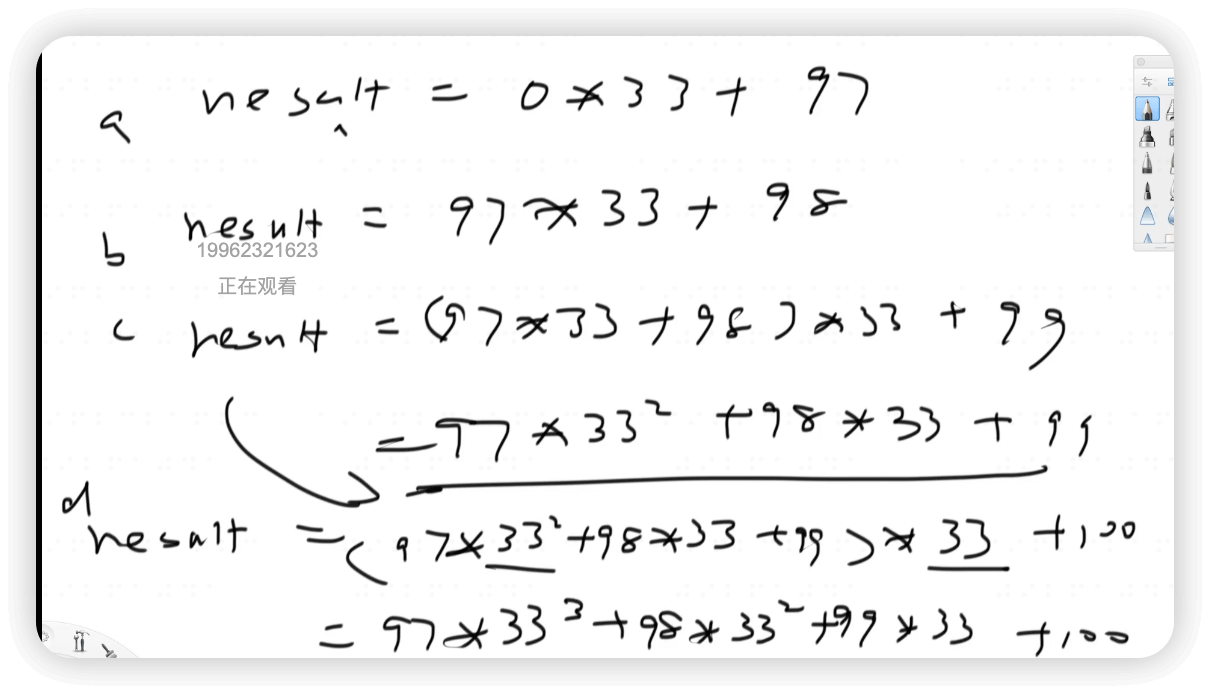 a result = 0 * 33 + 97
b result = 97 * 33 + 98
19962321623
正在观看
c result = (97 * 33 + 98) * 33 + 99
= 97 * 33² + 98 * 33 + 99
d
result = (97 * 33² + 98 * 33 + 99) * 33 + 100
= 97 * 33³ + 98 * 33² + 99 * 33 + 100